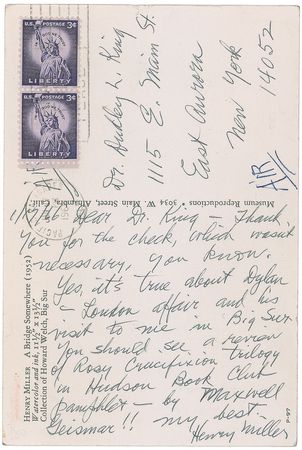 U.S. POSTAGE 3¢
LIBERTY
U.S. POSTAGE 3¢
LIBERTY
Dr. Dudley L. King
1115 E. Main St.
East Aurora
New York
14052
AIR
Museum Reproductions • 3034 W. Main Street, Alhambra, Calif.
HENRY MILLER A Bridge Somewhere (1952)
Watercolor and ink, 11½" x 13½"
Collection of Howard Welch, Big Sur
P-97
Dear Dr. King — Thank
you for the check, which wasn't
necessary, you know.
Yes, it's true about Dylan
— London affair and his
visit to me in Big Sur.
You should see a review
of Rosy Crucifixion trilogy
in Hudson Book Club
pamphlet — by Maxwell
Geismar!! My best —
Henry Miller